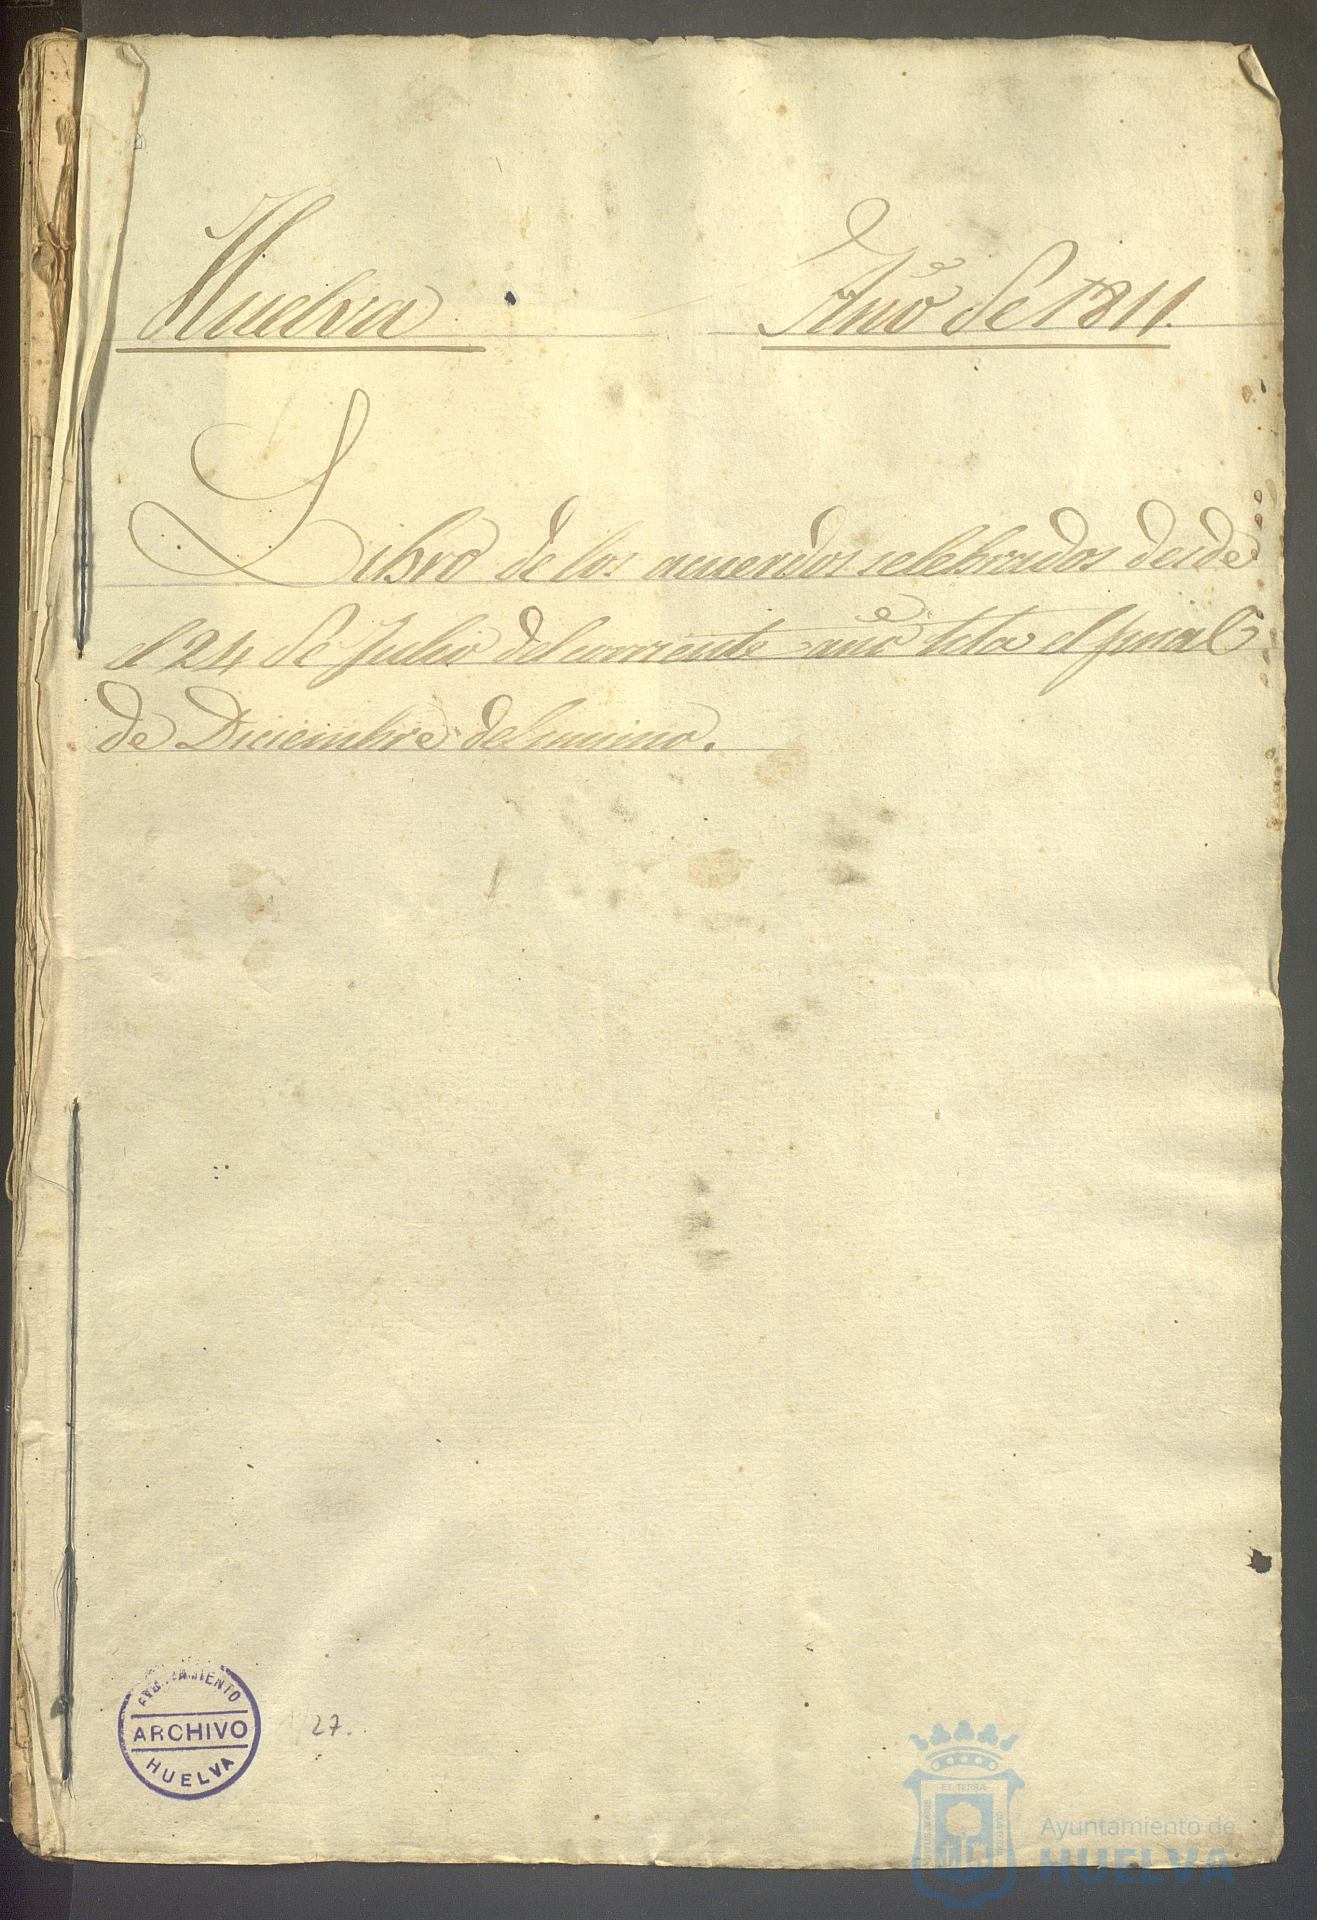 Huelva Año de 1811.
Libro de los acuerdos selebrados desde
el 24 de Julio del corriente año hta el final
de Diciembre del mismo.
AYUNTAMIENTO
ARCHIVO
HUELVA
27.
ET TERRA
Ayuntamiento de
HUELVA